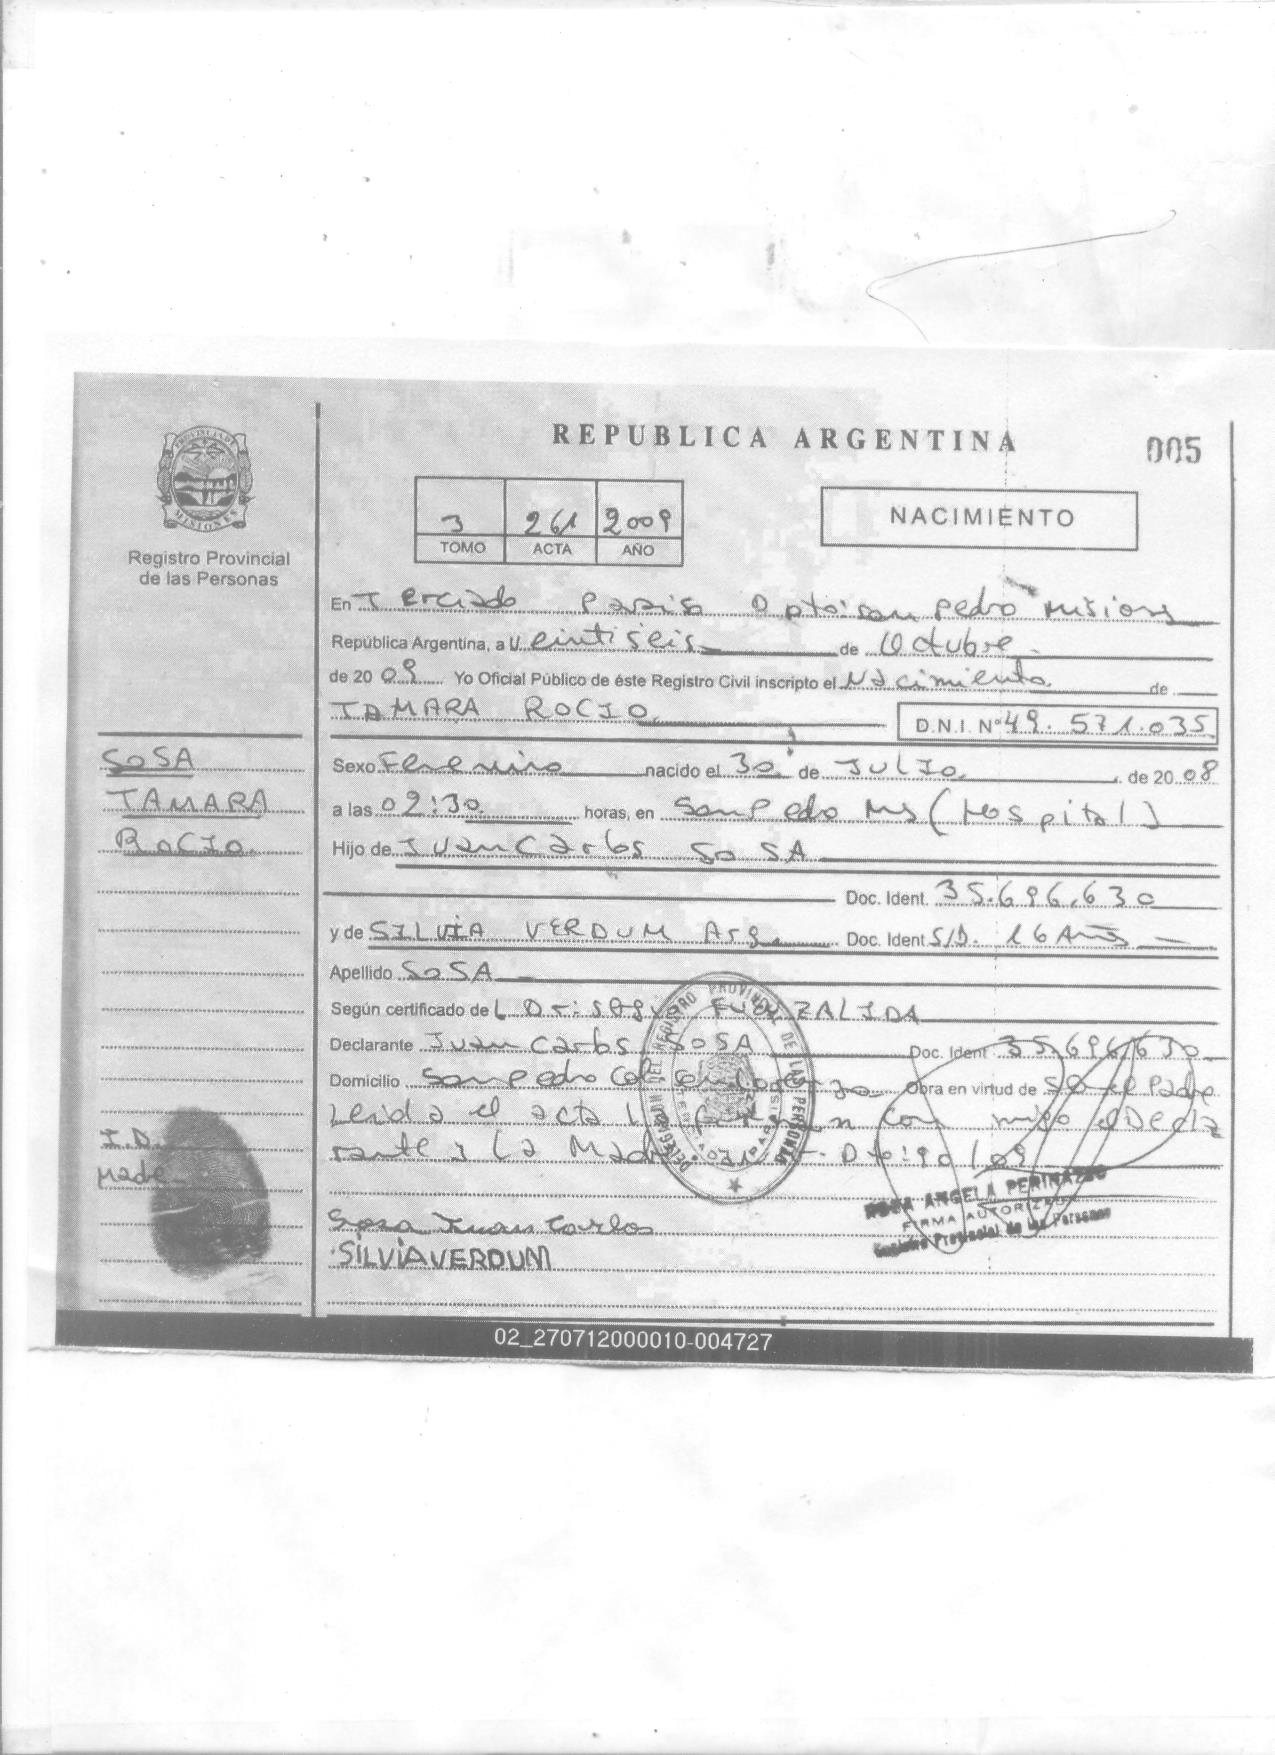 REPUBLICA ARGENTINA
005
PROVINCIA DE MISIONES
Registro Provincial
de las Personas
3 261 2009
TOMO ACTA AÑO
NACIMIENTO
En Terciado Paraiso Dpto: San Pedro Misiones
República Argentina, a Veintiseis de Octubre
de 20 09 Yo Oficial Público de éste Registro Civil inscripto el Nacimiento de
TAMARA ROCIO D.N.I. Nº 49.571.035
SOSA
TAMARA
ROCIO
Sexo Femenino nacido el 30 de JULIO de 20 08
a las 02:30 horas, en San Pedro Ms (Hospital)
Hijo de Juan Carlos SOSA
Doc. Ident. 35.696.630
y de SILVIA VERDUM Arg. Doc. Ident S/D. 16 Años
Apellido SOSA
Según certificado de
Declarante Juan Carlos SOSA Doc. Ident 35.696.630
Domicilio San Pedro Obra en virtud de ser el Padre
Leida el acta con migo el Decla
rante y La Madre Dto: 90/09
I.D.
Madre
Sosa Juan Carlos
SILVIA VERDUM
DELEGACION DEL REGISTRO PROVINCIAL DE LAS PERSONAS
ROSA ANGELA PERINAZZO
FIRMA AUTORIZADA
Registro Provincial de las Personas
02_270712000010-004727